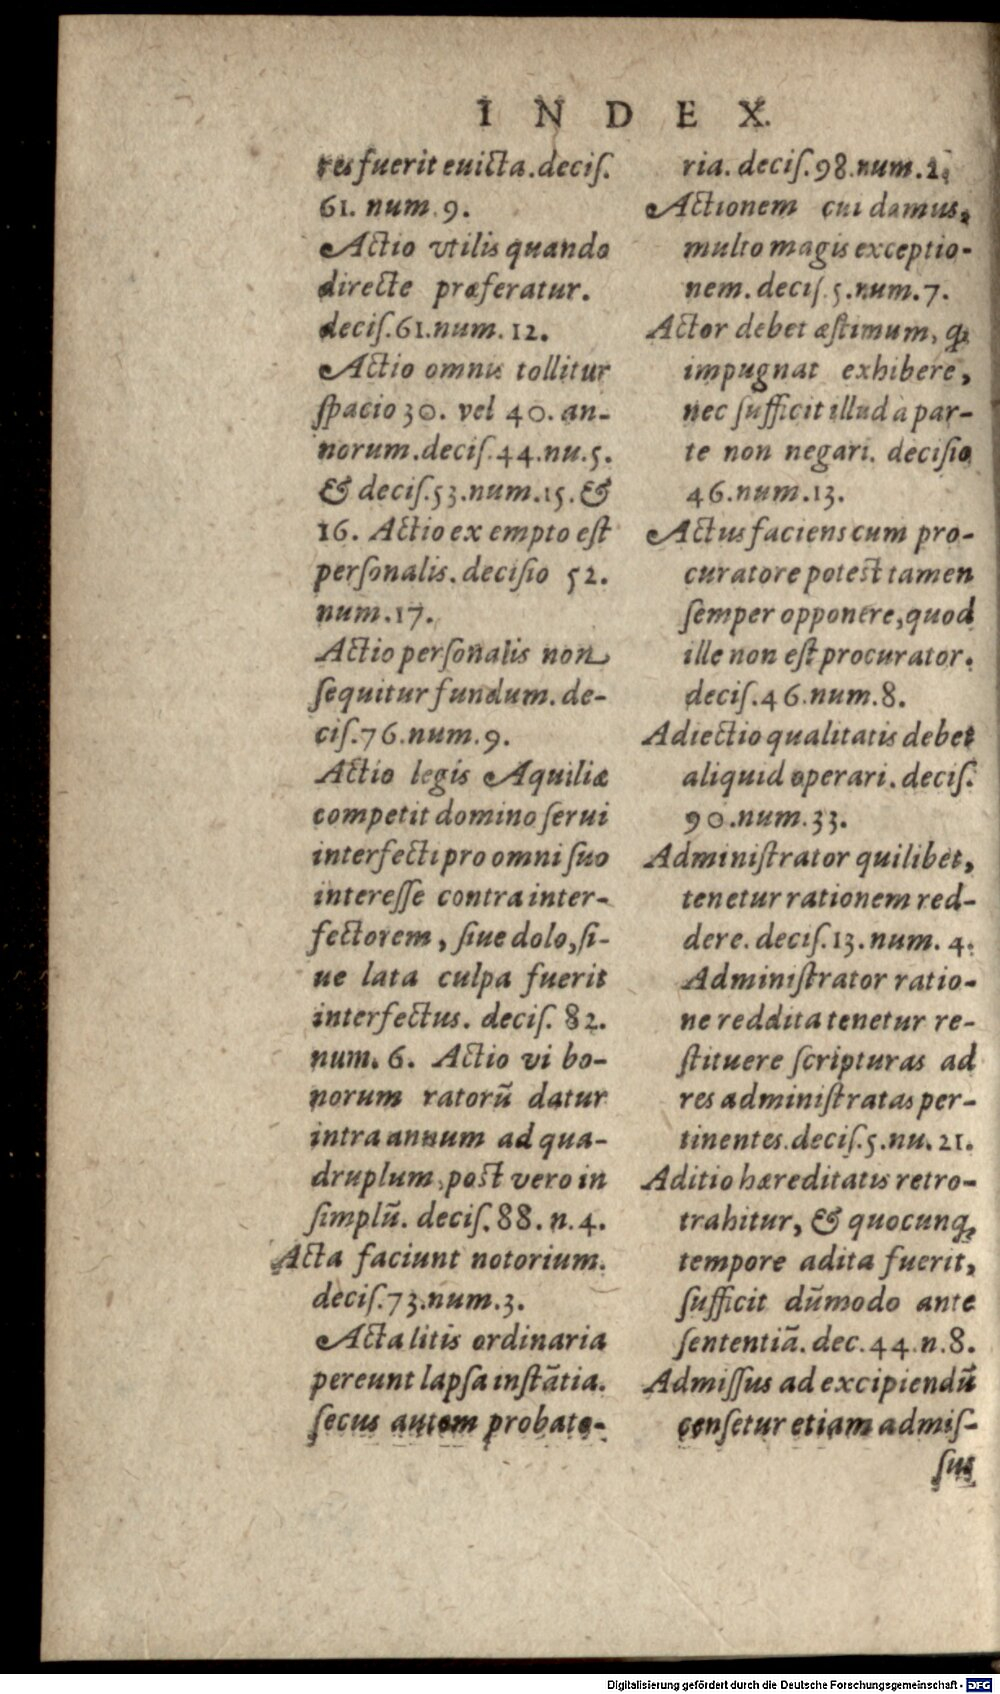 INDEX.
res fuerit euicta. decis.
61. num. 9.
Actio vtilis quando
directe præferatur.
decis. 61. num. 12.
Actio omnis tollitur
spacio 30. vel 40. an-
norum. decis. 44. nu. 5.
& decis. 53. num. 15. &
16. Actio ex empto est
personalis. decisio 52.
num. 17.
Actio personalis non
sequitur fundum. de-
cis. 76. num. 9.
Actio legis Aquiliæ
competit domino serui
interfecti pro omni suo
interesse contra inter-
fectorem, siue dolo, si-
ue lata culpa fuerit
interfectus. decis. 82.
num. 6. Actio vi bo-
norum ratorū datur
intra annum ad qua-
druplum, post vero in
simplū. decis. 88. n. 4.
Acta faciunt notorium.
decis. 73. num. 3.
Acta litis ordinaria
pereunt lapsa instātia.
secus autem probato-
ria. decis. 98. num. 2.
Actionem cui damus,
multo magis exceptio-
nem. decis. 5. num. 7.
Actor debet æstimum, ꝙ
impugnat exhibere,
nec sufficit illud à par-
te non negari. decisio
46. num. 13.
Actus faciens cum pro-
curatore potest tamen
semper opponere, quod
ille non est procurator.
decis. 46. num. 8.
Adiectio qualitatis debet
aliquid operari. decis.
90. num. 33.
Administrator quilibet,
tenetur rationem red-
dere. decis. 13. num. 4.
Administrator ratio-
ne reddita tenetur re-
stituere scripturas ad
res administratas per-
tinentes. decis. 5. nu. 21.
Aditio hæreditatis retro-
trahitur, & quocunq;
tempore adita fuerit,
sufficit dūmodo ante
sententiā. dec. 44. n. 8.
Admissus ad excipiendū
censetur etiam admis-
sus
Digitalisierung gefördert durch die Deutsche Forschungsgemeinschaft - DFG